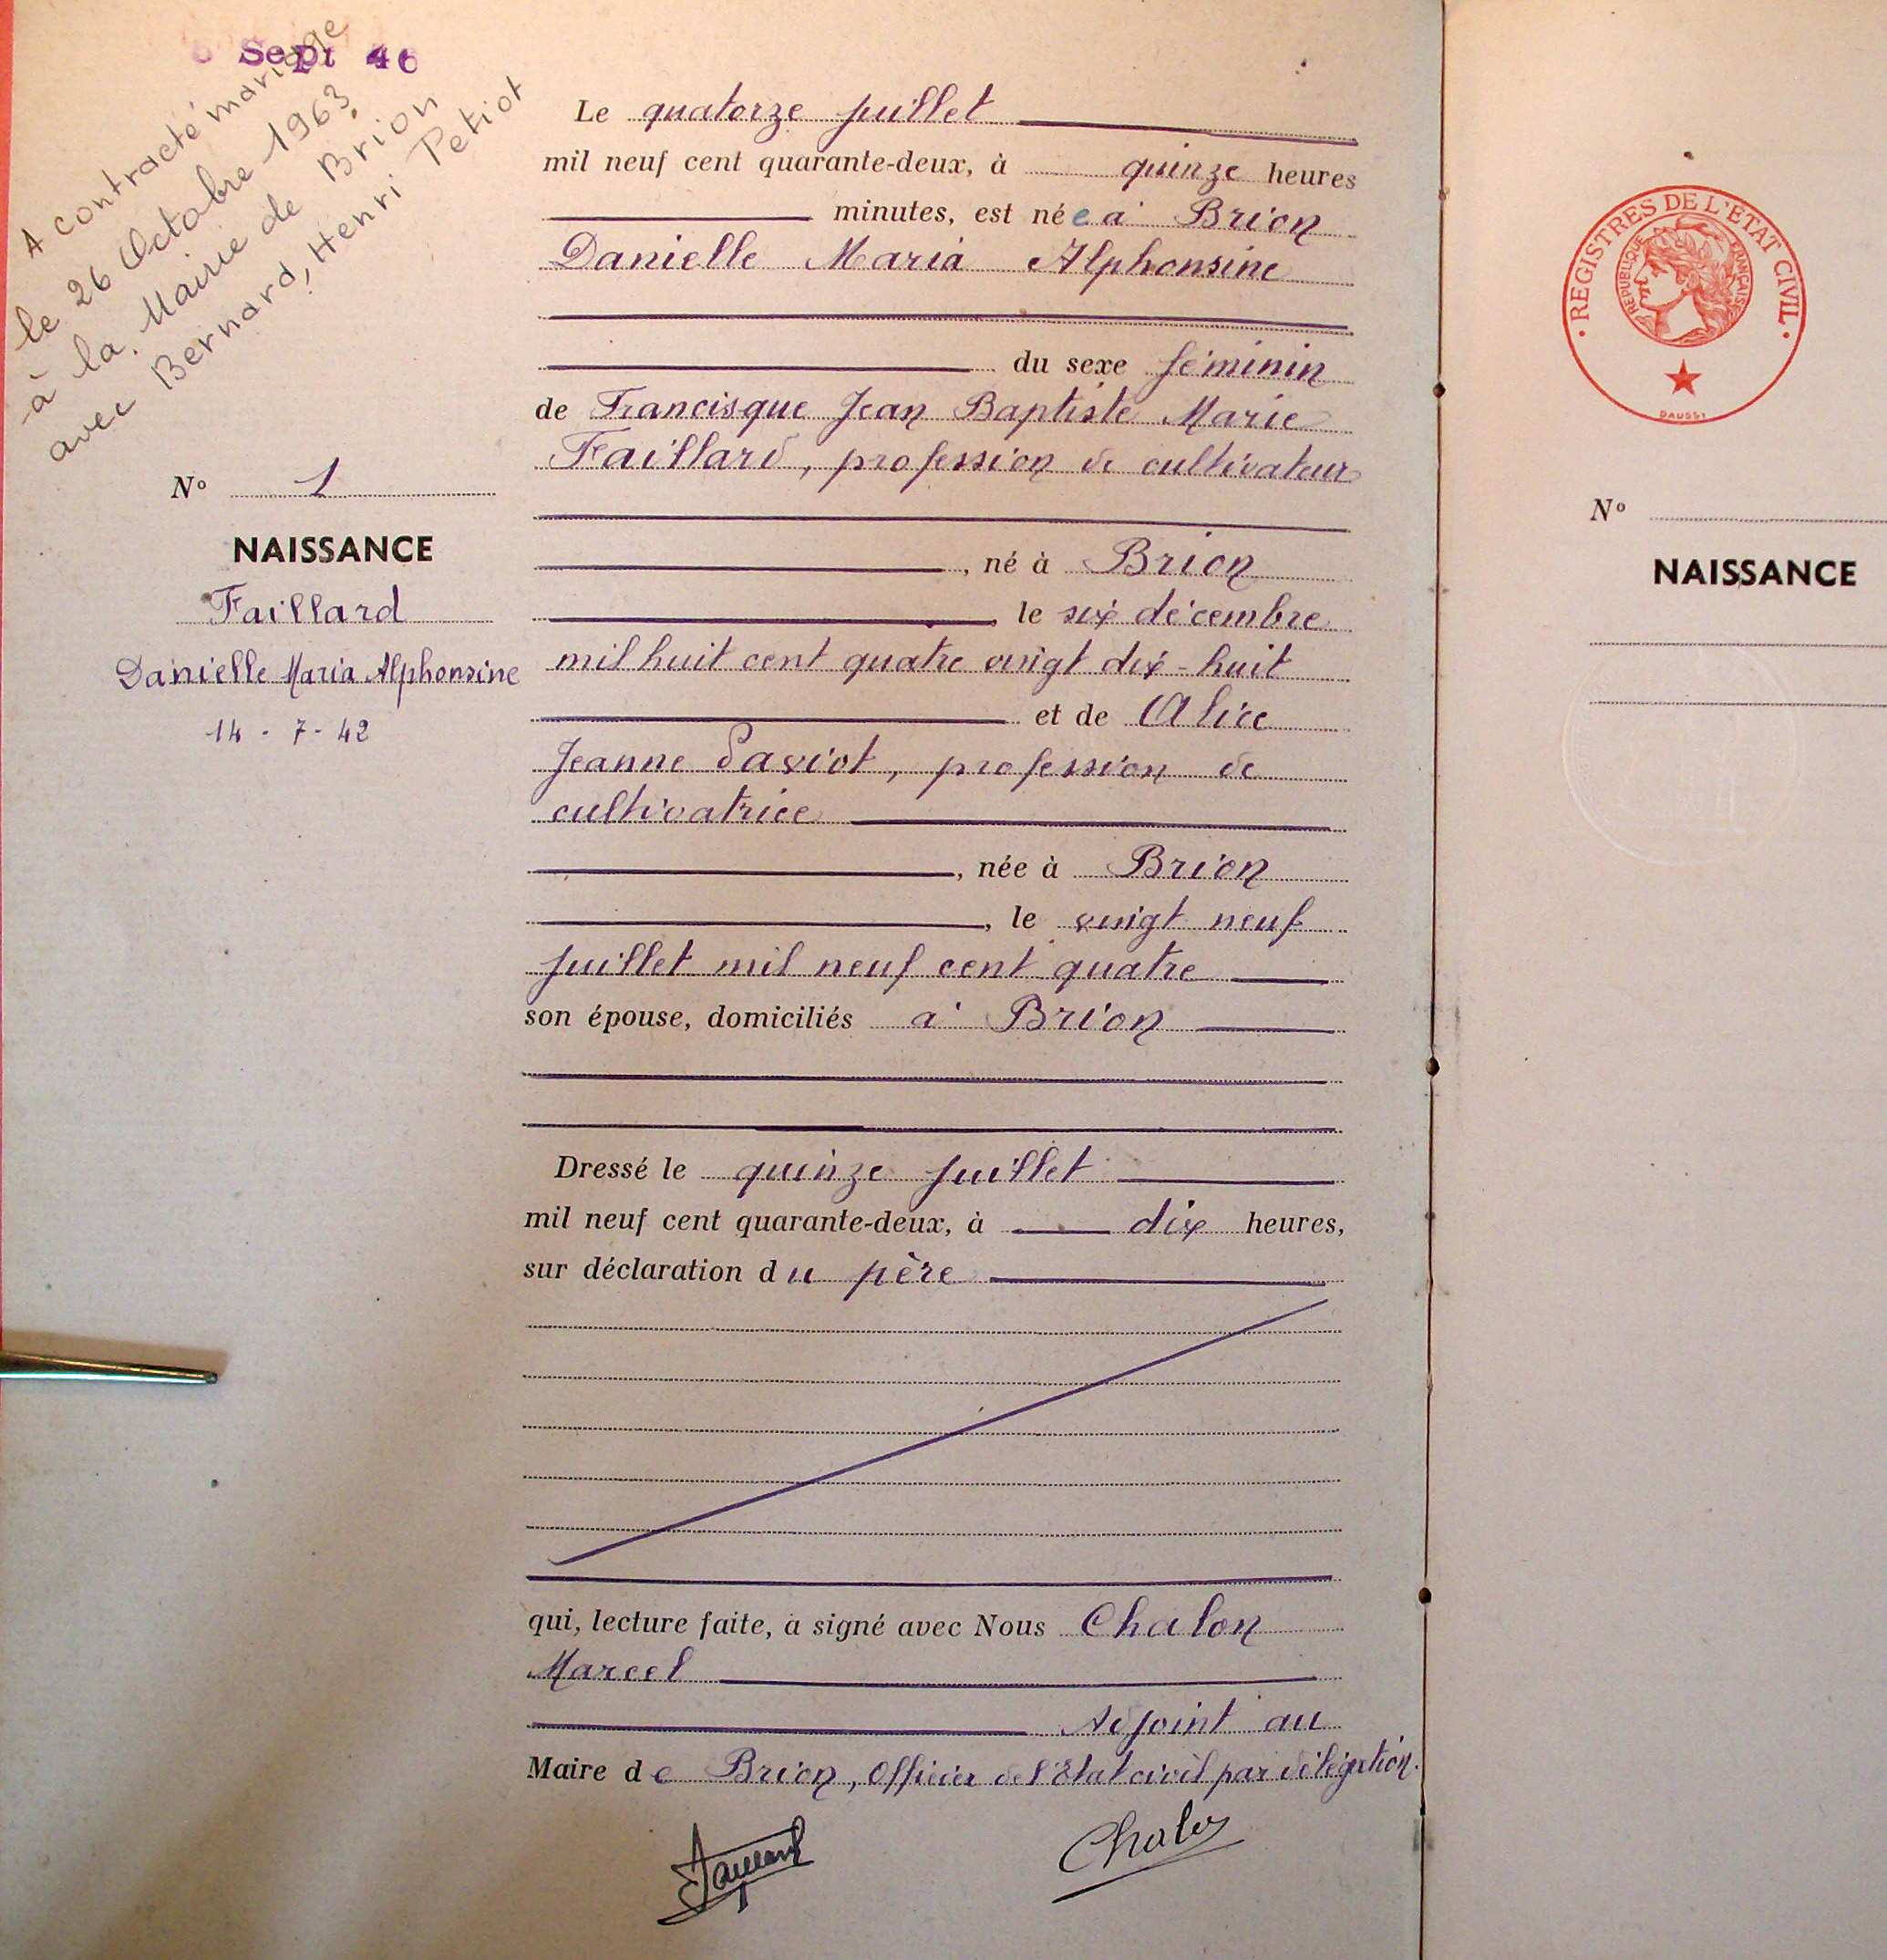 Sept 46
A contracté mariage
le 26 Octobre 1963
à la Mairie de Brion
avec Bernard, Henri Petiot
Nº 1
NAISSANCE
Faillard
Danielle Maria Alphonsine
14 - 7 - 42
Le quatorze juillet
mil neuf cent quarante-deux, à quinze heures
minutes, est née à Brion
Danielle Maria Alphonsine
du sexe féminin
de Francisque Jean Baptiste Marie
Faillard, profession de cultivateur
, né à Brion
, le six décembre
mil huit cent quatre vingt dix-huit
et de Alice
Jeanne Paviot, profession de
cultivatrice
, née à Brion
, le vingt neuf
juillet mil neuf cent quatre
son épouse, domiciliés à Brion
Dressé le quinze juillet
mil neuf cent quarante-deux, à dix heures,
sur déclaration du père
qui, lecture faite, a signé avec Nous Chalon
Marcel
Adjoint au
Maire de Brion, Officier de l'Etat civil par délégation.
Faillard
Chalon
REGISTRES DE L'ETAT CIVIL
REPUBLIQUE FRANÇAISE
DAUSSI
Nº
NAISSANCE